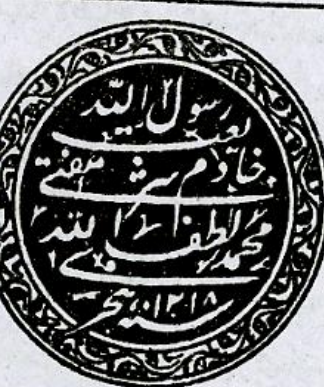 رسول الله
خادم شریعت مفتی
محمد لطف الله
سنه ۱۲۱۸ هجری